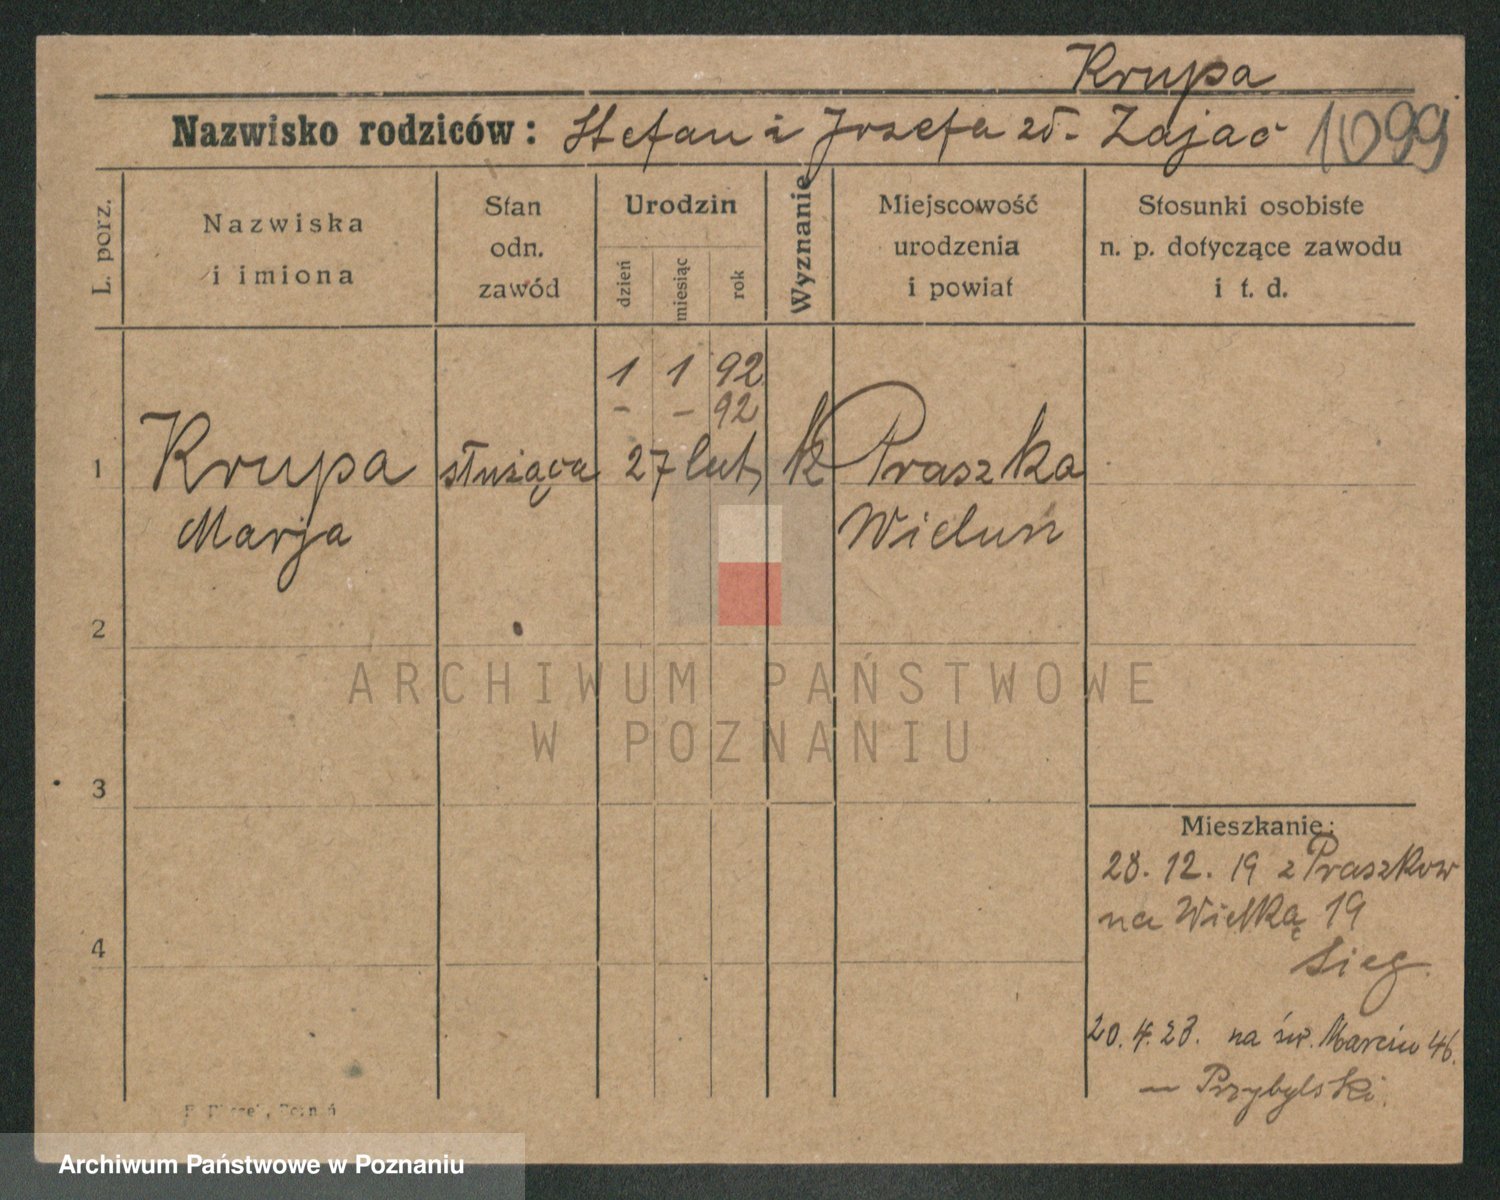 Krupa
Nazwisko rodziców: Stefan i Józefa zd- Zając 1099
L. porz.
Nazwiska
i imiona
Stan
odn.
zawód
Urodzin
dzień
miesiąc
rok
Wyznanie
Miejscowość
urodzenia
i powiat
Stosunki osobiste
n. p. dotyczące zawodu
i t. d.
1 1 92
- - 92
1 Krupa służąca 27 lut, k Praszka
Marja Wieluń
2
3
4
Mieszkanie:
28. 12. 19 z Praszkow
na Wielką 19
Sieg.
20. 4. 23. na św. Marcin 46.
— Przybylski.
Poznań
ARCHIWUM PAŃSTWOWE
W POZNANIU
Archiwum Państwowe w Poznaniu